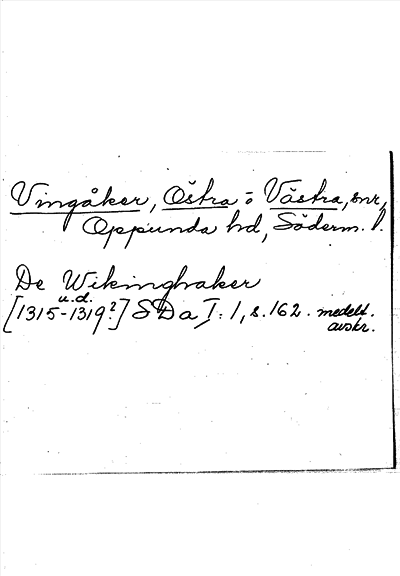 Vingåker, Östra o Västra, snr,
Oppunda hd, Söderm. l.
De Wikinghaker
u.d.
[1315-1319?] SDa I:1, s.162. medelt.
avskr.